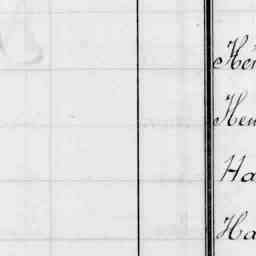 Hen
Hen
Ha
Ha